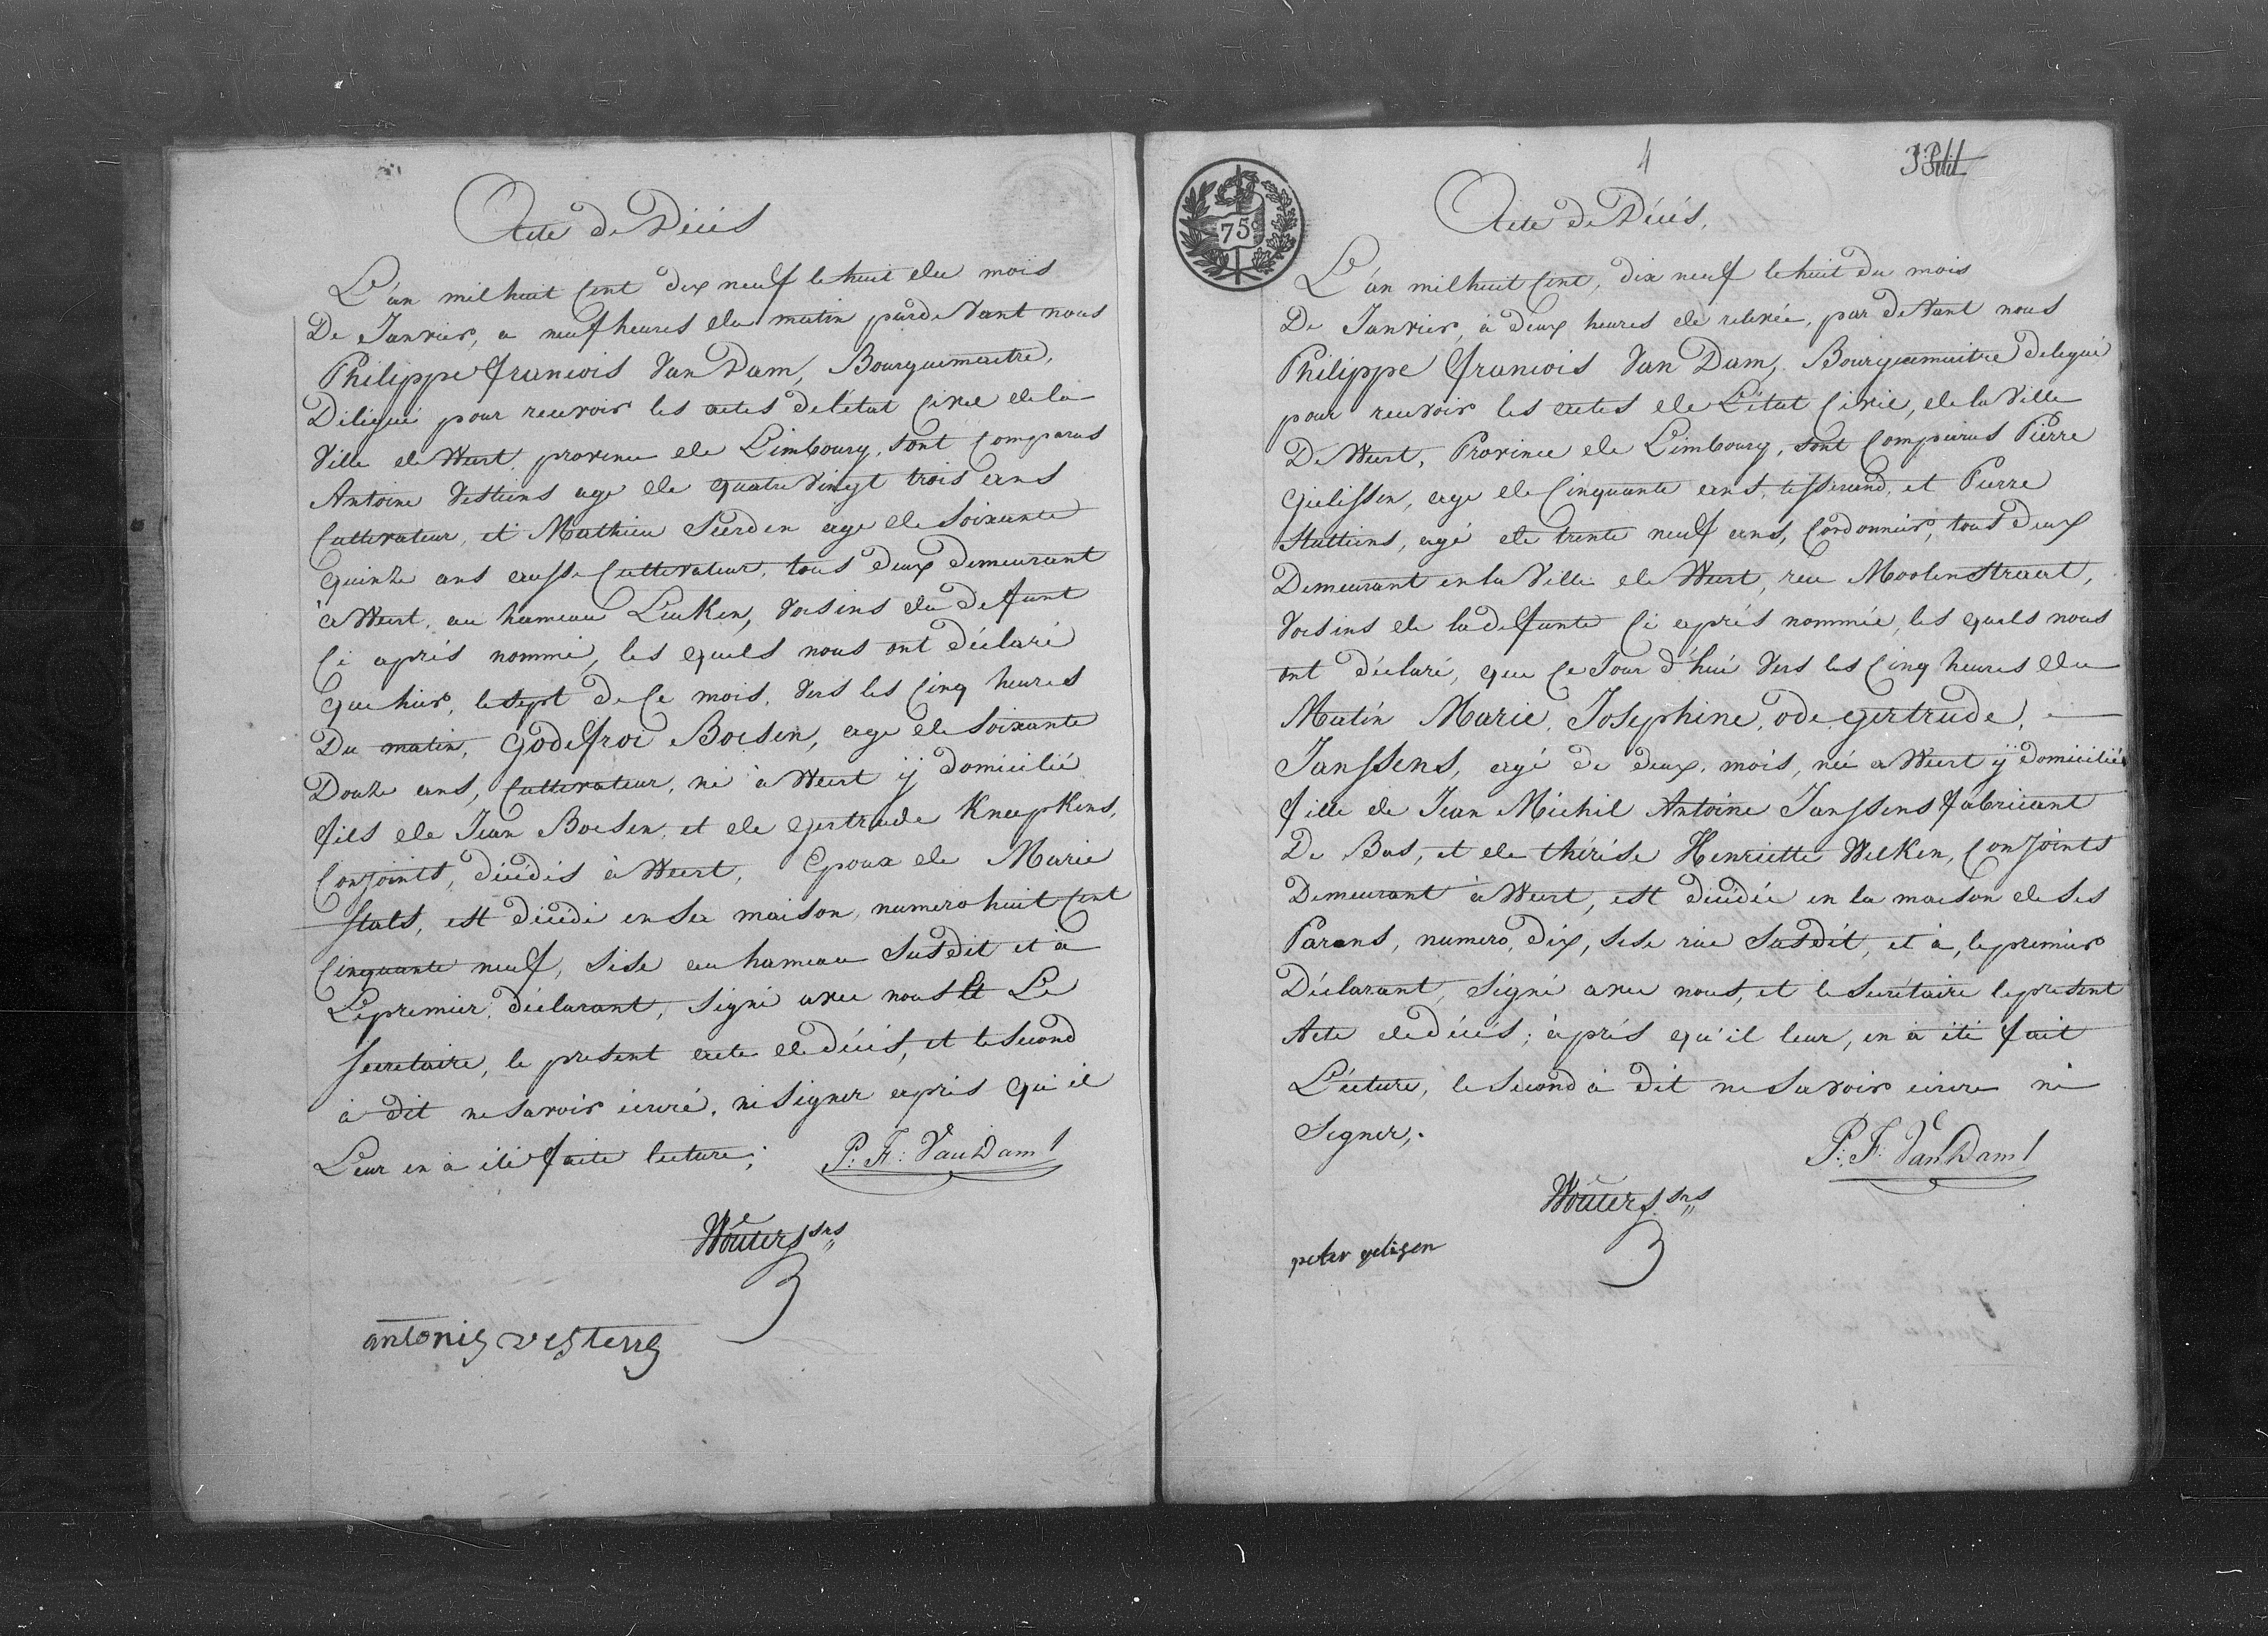 Acte de Décés
L'an mil huit Cent dix neuf le huit du mois
De Janvier, a neuf heures du matin pardevant nous
Philippe François Van Dam, Bourguemaitre,
Délégué pour recevoir les actes de l'état Civil de la
Ville de Weert, province de Limbourg, sont Comparus
Antoine Vestiens age de quatre Vingt trois ans
Cultivateur, et Mathieu Sierden age de Soixante
quinze ans aussi Cultivateur, tous deux demeurant
à Weert, au hameau Leuken, Voisins du defunt
Ci aprés nommé, les quels nous ont déclaré
que hier, le sept de Ce mois, Vers les Cinq heures
Du matin, Godefroi Boesen, age de Soixante
Douze ans, Cultivateur, né à Weert ij domicilié
fils de Jean Boesen, et de Gertrude Kneepkens,
Conjoints, décédés à Weert, Epoux de Marie
Stals, est décédé en sa maison, numero huit Cent
Cinquante neuf, sise au hameau Susdit et à
Le premier déclarant, signé avec nous et Le
Secretaire, le present acte de décés, et le second
à dit ne savoir écrire, ni signer aprés qu'il
Leur en à été faite lecture;
P: F: Van Dam
Wouters srs
antonis vestens
1
3
75
Acte de Décés,
L'an mil huit Cent, dix neuf le huit du mois
De Janvier, à deux heures de relevée, par devant nous
Philippe François Van Dam, Bourguemaitre delegué
pour recevoir les actes de L'état Civil, de la Ville
De Weert, Province de Limbourg, sont Comparus Pierre
Gielissen, age de Cinquante ans, tisserand, et Pierre
Stultiens, agé de trente neuf ans, Cordonnier, tous deux
Demeurant en la Ville de Weert, rue Moolenstraat,
Voisins de la defunte Ci aprés nommée, les quels nous
ont déclaré, que Ce Jour d'hui Vers les Cinq heures du
Matin Marie, Josephine, ode, gertrude,
Janssens, agé de deux mois, née a Weert ij domiciliée
fille de Jean Michil Antoine Janssens fabricant
De Bas, et de thérése Henriette Welken, Conjoints
Demeurant à Weert, est décédée en la maison de ses
Parens, numero, dix, sise rue Susdit, et à, le premier
Déclarant, Signé avec nous, et le Secrétaire le present
Acte de décés; àprés qu'il leur, en à été fait
L'écture, le second à dit ne savoir écrire ni
Signer,.
P: F: Van Dam
Wouters srs
peter gelisen